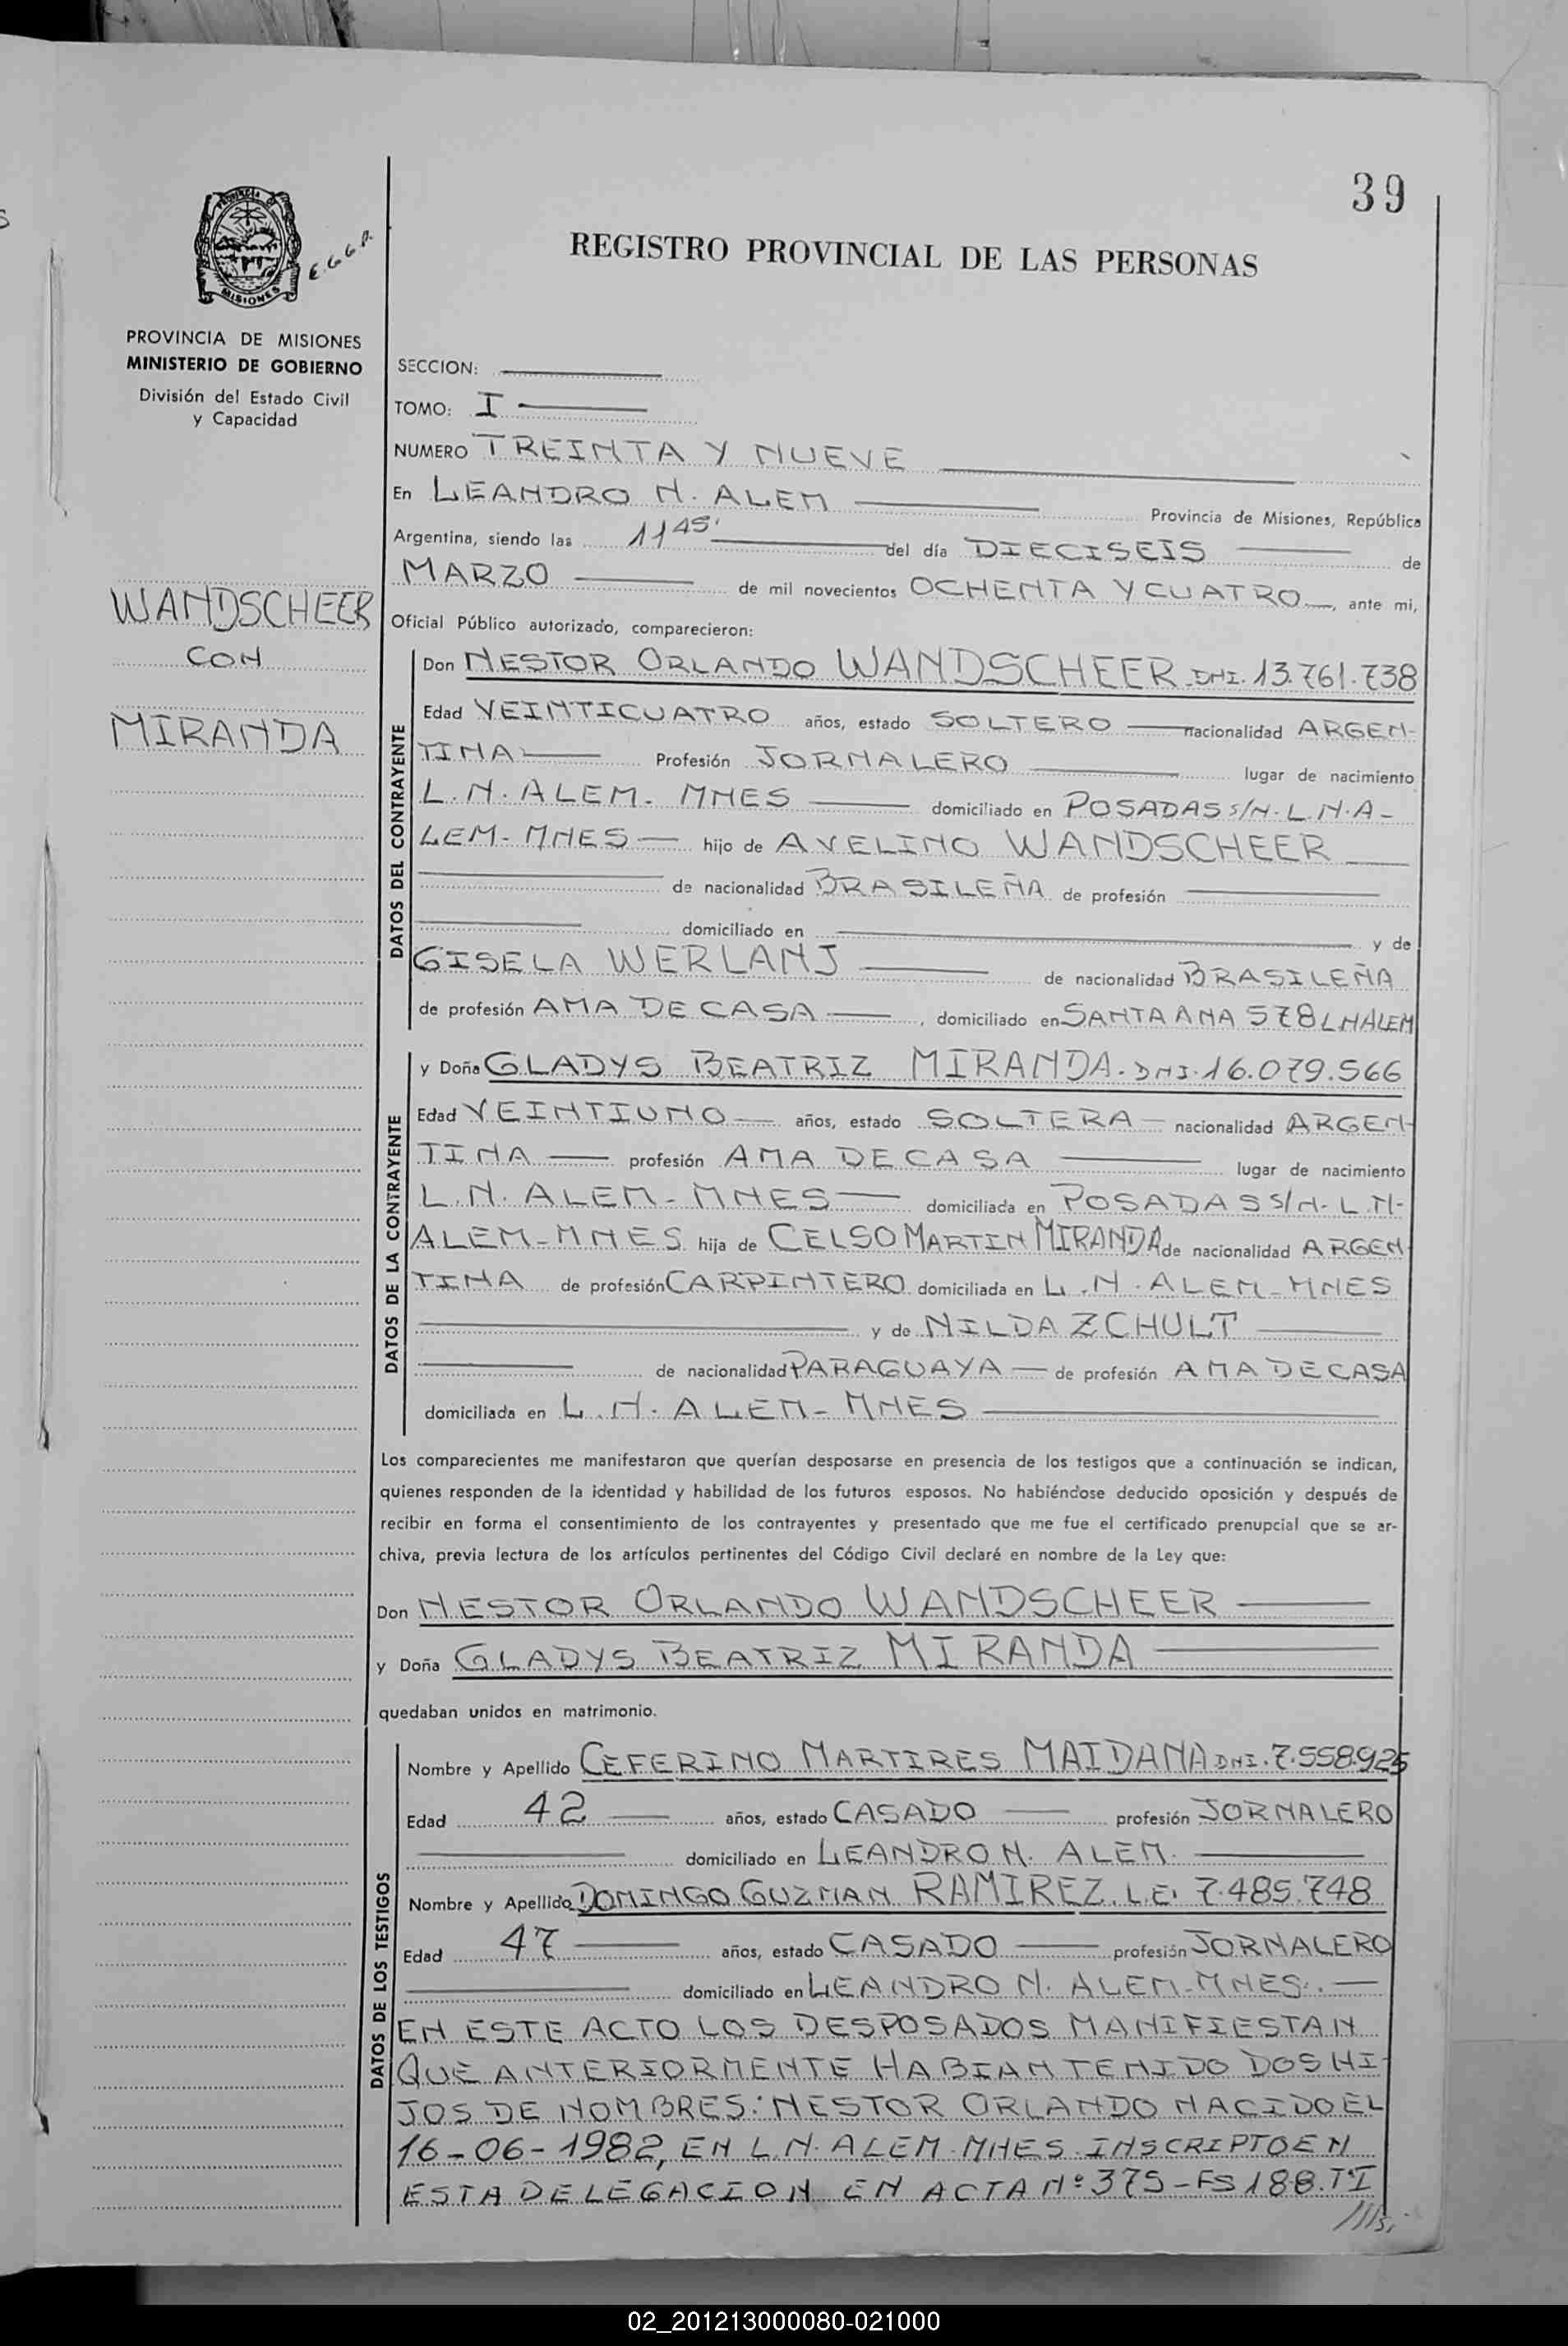 39
REGISTRO PROVINCIAL DE LAS PERSONAS
PROVINCIA DE
MISIONES
E.G.G.P.
PROVINCIA DE MISIONES
MINISTERIO DE GOBIERNO
División del Estado Civil
y Capacidad
WANDSCHEER
CON
MIRANDA
SECCION:
TOMO: I
NUMERO TREINTA Y NUEVE
En LEANDRO N. ALEM Provincia de Misiones, República
Argentina, siendo las 11 45' del día DIECISEIS de
MARZO de mil novecientos OCHENTA Y CUATRO, ante mi,
Oficial Público autorizado, comparecieron:
DATOS DEL CONTRAYENTE
Don NESTOR ORLANDO WANDSCHEER DNI. 13.761.738
Edad VEINTICUATRO años, estado SOLTERO nacionalidad ARGEN-
TINA Profesión JORNALERO lugar de nacimiento
L.N. ALEM- MNES domiciliado en POSADAS S/N- L.N.A-
LEM- MNES hijo de AVELINO WANDSCHEER
de nacionalidad BRASILEÑA de profesión
domiciliado en y de
GISELA WERLANJ de nacionalidad BRASILEÑA
de profesión AMA DE CASA, domiciliado en SANTA ANA 578 L N ALEM
DATOS DE LA CONTRAYENTE
y Doña GLADYS BEATRIZ MIRANDA. DNI. 16.079.566
Edad VEINTIUNO años, estado SOLTERA nacionalidad ARGEN-
TINA profesión AMA DE CASA lugar de nacimiento
L.N. ALEM- MNES domiciliada en POSADAS S/N- L.N-
ALEM- MNES hija de CELSO MARTIN MIRANDA de nacionalidad ARGEN
TINA de profesión CARPINTERO domiciliada en L.N. ALEM- MNES
y de NILDA ZCHULT
de nacionalidad PARAGUAYA de profesión AMA DE CASA
domiciliada en L.N. ALEM- MNES
Los comparecientes me manifestaron que querían desposarse en presencia de los testigos que a continuación se indican,
quienes responden de la identidad y habilidad de los futuros esposos. No habiéndose deducido oposición y después de
recibir en forma el consentimiento de los contrayentes y presentado que me fue el certificado prenupcial que se ar-
chiva, previa lectura de los artículos pertinentes del Código Civil declaré en nombre de la Ley que:
Don NESTOR ORLANDO WANDSCHEER
y Doña GLADYS BEATRIZ MIRANDA
quedaban unidos en matrimonio.
DATOS DE LOS TESTIGOS
Nombre y Apellido CEFERINO MARTIRES MAIDANA DNI. 7.558.925
Edad 42 años, estado CASADO profesión JORNALERO
domiciliado en LEANDRO N. ALEM
Nombre y Apellido DOMINGO GUZMAN RAMIREZ. L.E. 7.485.748
Edad 47 años, estado CASADO profesión JORNALERO
domiciliado en LEANDRO N. ALEM- MNES.
EN ESTE ACTO LOS DESPOSADOS MANIFIESTAN
QUE ANTERIORMENTE HABIAN TENIDO DOS HI-
JOS DE NOMBRES: NESTOR ORLANDO NACIDO EL
16-06-1982, EN L.N. ALEM- MNES INSCRIPTO EN
ESTA DELEGACION EN ACTA Nº 375-FS 188. Tº I
02_201213000080-021000